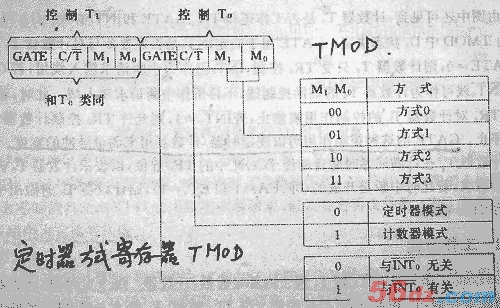 控制 T₁ 控制 T₀
GATE C/T̅ M₁ M₀ GATE C/T̅ M₁ M₀
TMOD.
和T₀ 类同
M₁ M₀ 方式
00 方式0
01 方式1
10 方式2
11 方式3
0 定时器模式
1 计数器模式
定时器方式寄存器 TMOD
0 与I̅N̅T̅₀ 无关
1 与I̅N̅T̅₀ 有关
56dz.com